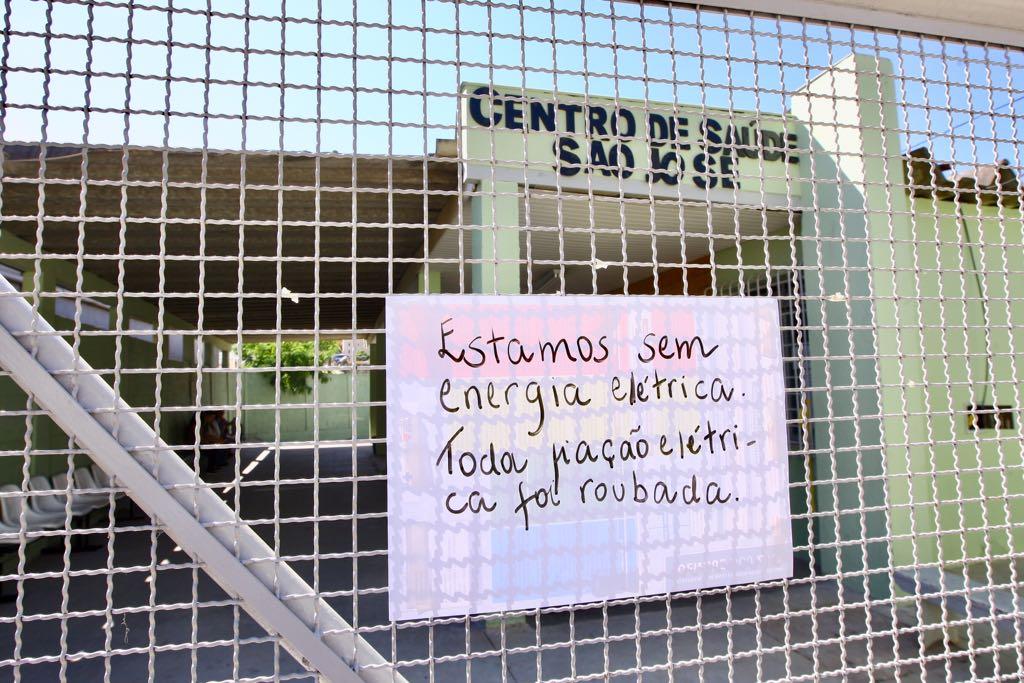 CENTRO DE SAÚDE
SAO JOSE
Estamos sem
energia elétrica.
Toda fiação elétri-
ca foi roubada.